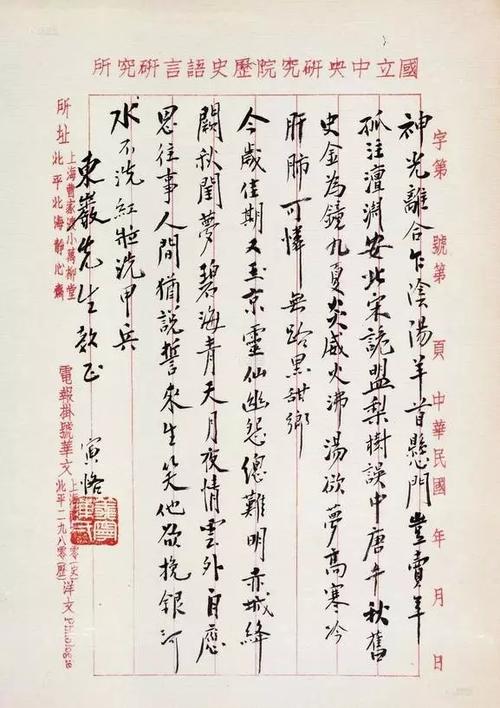 國立中央研究院歷史語言研究所
字第 號第 頁 中華民國 年 月 日
神光離合乍陰陽羊首懸門豈賣羊
孤注澶淵安北宋詭盟梨樹誤中唐千秋舊
史金為鏡九夏炎威火沸湯欲夢高寒冷
肝肺可憐無路黑甜鄉
今歲佳期又玉京靈仙幽怨總難明赤城絳
闕秋閨夢碧海青天月夜情雲外自應
思往事人間猶說誓來生笑他欲挽銀河
水不洗紅粧洗甲兵
東巖先生教正
寅恪
所址
上海曹家渡小萬柳堂
北平北海靜心齋
電報掛號華文
上海
北平
洋文 Philologie